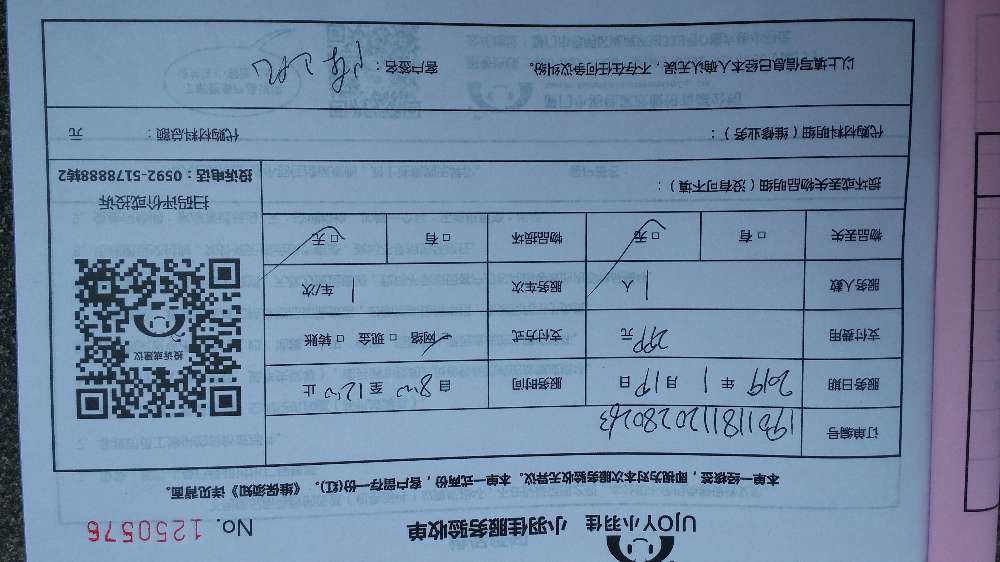 UJOY小羽佳 小羽佳服务验收单 No. 1250576
本单一经核签，即视为对本次服务验收无异议。本单一式两份，客户留存一份(红)。《维保须知》详见背面。
订单编号 19011811120280263
服务日期 2019 年 1 月 19 日 服务时间 自 8:00 至 12:00 止
支付费用 299 元 支付方式 □ 网络 □ 现金 □ 转账
服务人数 1 人 服务车次 1 车/次
物品丢失 □ 有 □ 无 物品损坏 □ 有 □ 无
投诉或建议
扫码评价或投诉
投诉电话：0592-5178888转2
损坏或丢失物品明细（没有可不填）：
代购材料明细（维修业务）： 代购材料总额： 元
以上填写信息已经本人确认无误，不存在任何争议纠纷。 客户签名：